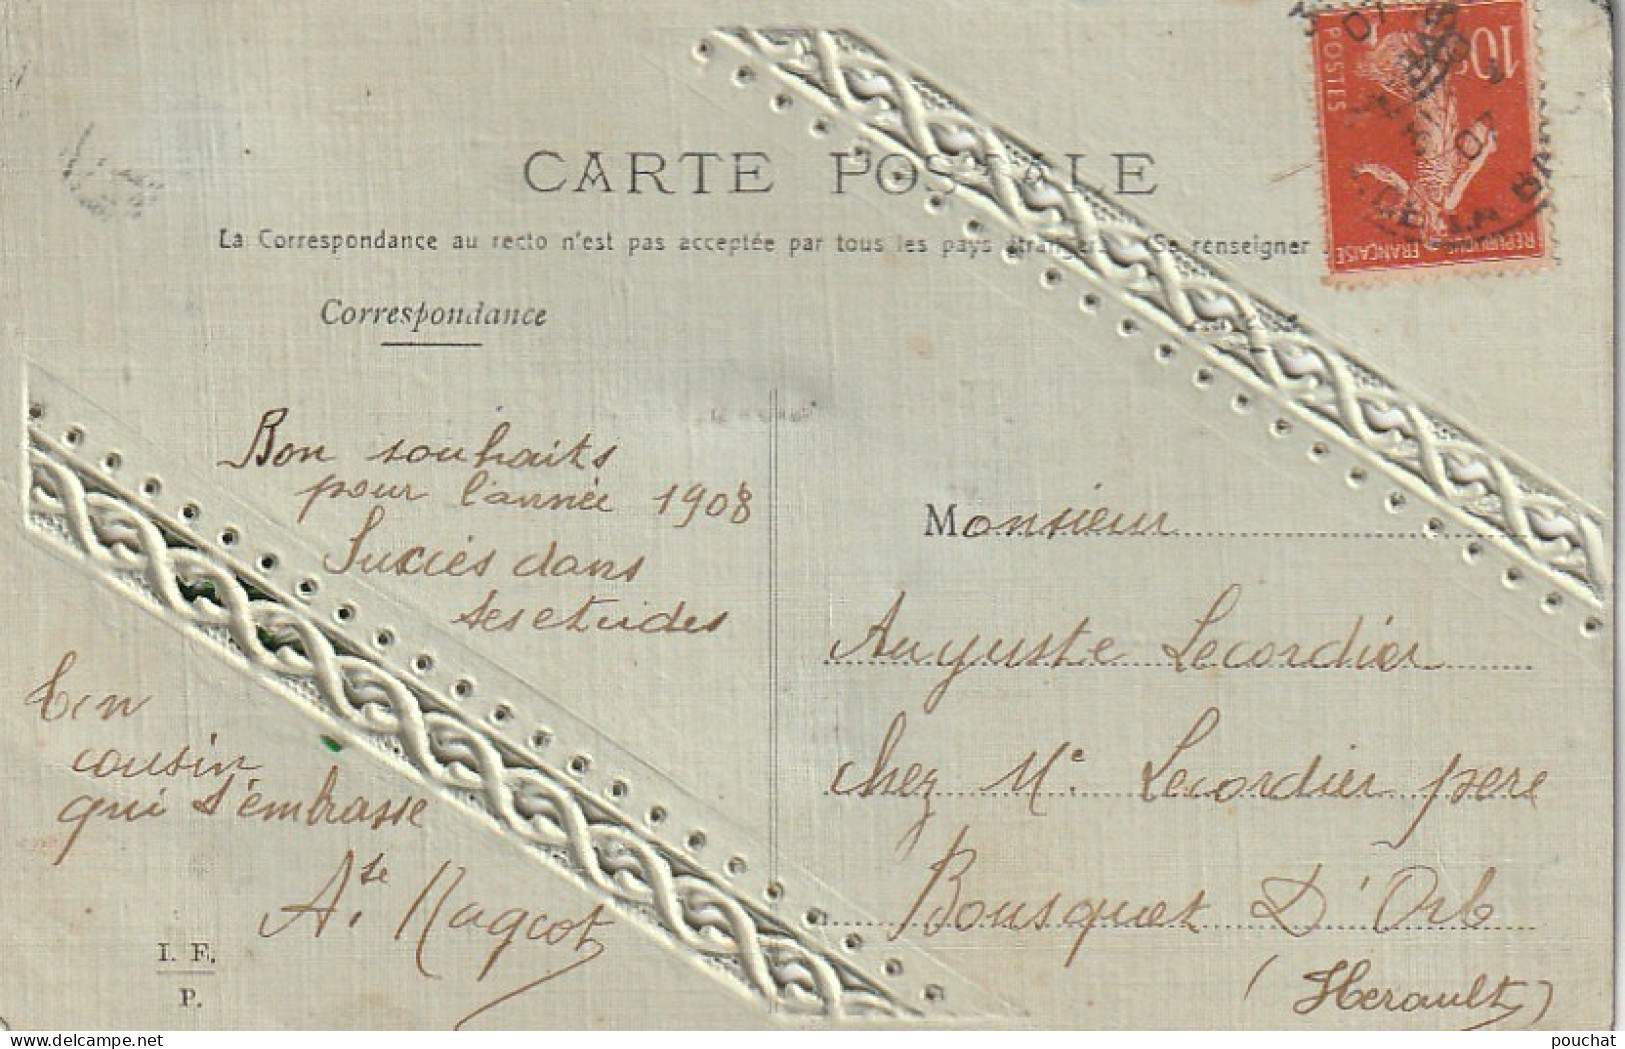 CARTE POSTALE
La Correspondance au recto n'est pas acceptée par tous les pays étrangers (Se renseigner
Correspondance
10c
POSTES
REPUBLIQUE FRANÇAISE
07
Bon souhaits
pour l'année 1908
Succès dans
ses etudes
Ton
cousin
qui t'embrasse
Monsieur
Auguste Lecordier
chez Mr. Lecordier pere
Bousquet D'Orb
(Herault)
I. F.
P.
delcampe.net
pouchat